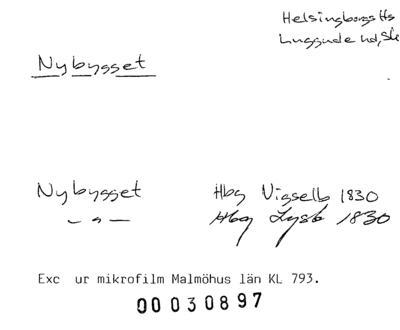 Helsingborgs Hs
Luggude hd, Sk
Nybygget
Nybygget Hbg Vigselb 1830
— " — Hbg Lysb 1830
Exc ur mikrofilm Malmöhus län KL 793.
00030897